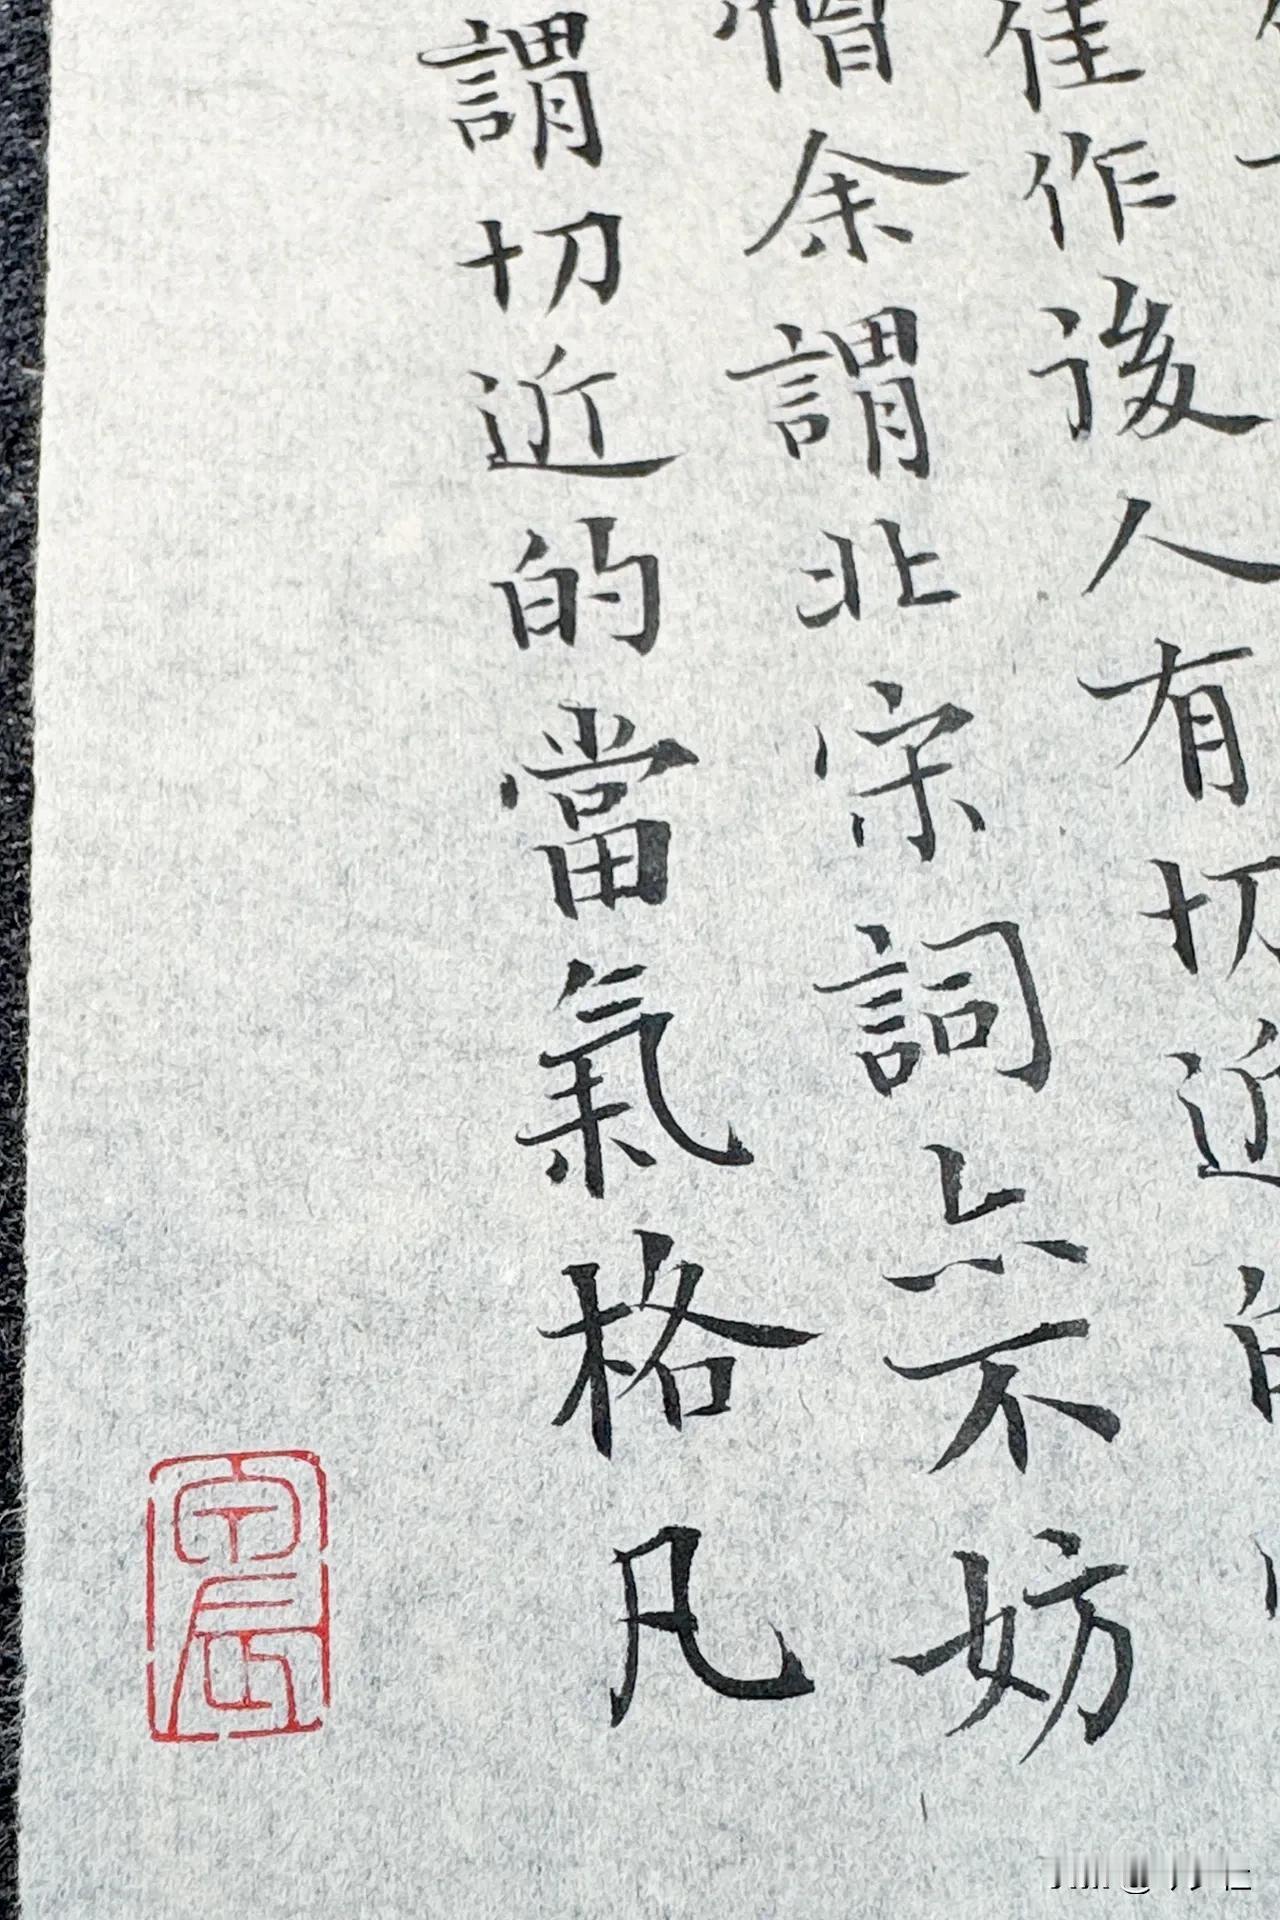 佳作後人有切近的
憎余謂北宋詞亦不妨
謂切近的當氣格凡